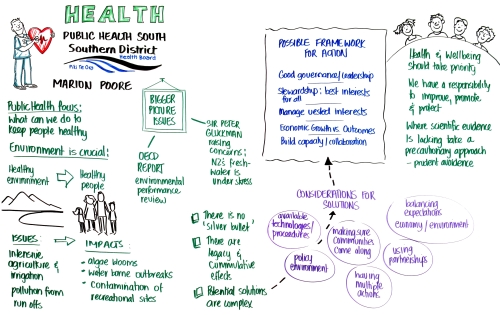 HEALTH
PUBLIC HEALTH SOUTH
Southern District
Health Board
Piki Te Ora
MARION POORE
Public Health focus:
what can we do to
keep people healthy
Environment is crucial:
Healthy
environment
Healthy
people
ISSUES:
intensive
agriculture &
irrigation
pollution from
run offs
IMPACTS:
- algae blooms
- water borne outbreaks
- Contamination of
recreational sites
BIGGER
PICTURE
ISSUES
OECD
REPORT
(environmental
performance
review)
SIR PETER
GLUCKMAN
raising
concerns:
NZ's fresh-
water is
under stress
There is no
'silver bullet'
There are
legacy &
Cummulative
effects
Potential solutions
are complex
POSSIBLE FRAMEWORK
FOR ACTION
Good governance/leadership
Stewardship: best interests
for all
Manage vested interests
Economic Growth vs Outcomes
Build capacity/collaboration
CONSIDERATIONS FOR
SOLUTIONS
available
technologies/
procedures
making sure
communities
come along
policy
environment
balancing
expectations
economy/environment
using
partnerships
having
multiple
actions
Health & Wellbeing
should take priority
We have a responsibility
to improve, promote
& protect
Where scientific evidence
is lacking take a
precautionary approach
- prudent avoidence